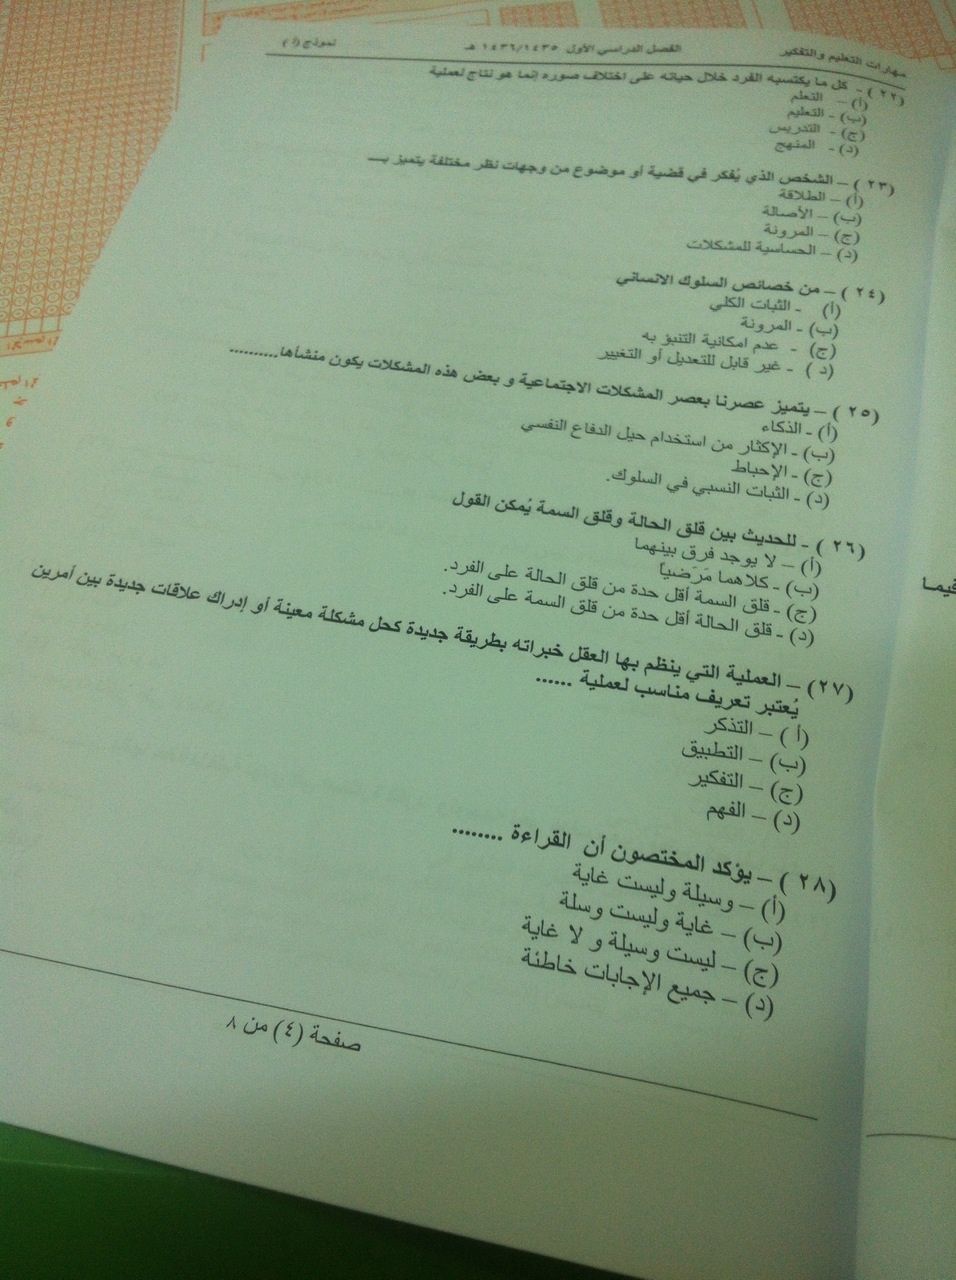 مهارات التعليم والتفكير الفصل الدراسي الأول ١٤٣٥/١٤٣٦ هـ نموذج (أ)
(٢٢) - كل ما يكتسبه الفرد خلال حياته على اختلاف صوره إنما هو نتاج لعملية
(أ) - التعلم
(ب) - التعليم
(ج) - التدريس
(د) - المنهج
(٢٣) – الشخص الذي يُفكر في قضية أو موضوع من وجهات نظر مختلفة يتميز بـــ
(أ) – الطلاقة
(ب) – الأصالة
(ج) – المرونة
(د) – الحساسية للمشكلات
(٢٤) – من خصائص السلوك الانساني
(أ) - الثبات الكلي
(ب) - المرونة
(ج) - عدم امكانية التنبؤ به
(د) - غير قابل للتعديل أو التغيير
(٢٥) – يتميز عصرنا بعصر المشكلات الاجتماعية و بعض هذه المشكلات يكون منشأها..........
(أ) - الذكاء
(ب) - الإكثار من استخدام حيل الدفاع النفسي
(ج) - الإحباط
(د) - الثبات النسبي في السلوك.
(٢٦) - للحديث بين قلق الحالة وقلق السمة يُمكن القول
(أ) – لا يوجد فرق بينهما
(ب) - كلاهما مَرَضياً
(ج) - قلق السمة أقل حدة من قلق الحالة على الفرد.
(د) - قلق الحالة أقل حدة من قلق السمة على الفرد.
(٢٧) – العملية التي ينظم بها العقل خبراته بطريقة جديدة كحل مشكلة معينة أو إدراك علاقات جديدة بين أمرين
يُعتبر تعريف مناسب لعملية ......
(أ) – التذكر
(ب) – التطبيق
(ج) – التفكير
(د) – الفهم
(٢٨) – يؤكد المختصون أن القراءة ........
(أ) – وسيلة وليست غاية
(ب) – غاية وليست وسلة
(ج) – ليست وسيلة و لا غاية
(د) – جميع الإجابات خاطئة
صفحة (٤) من ٨
فيما